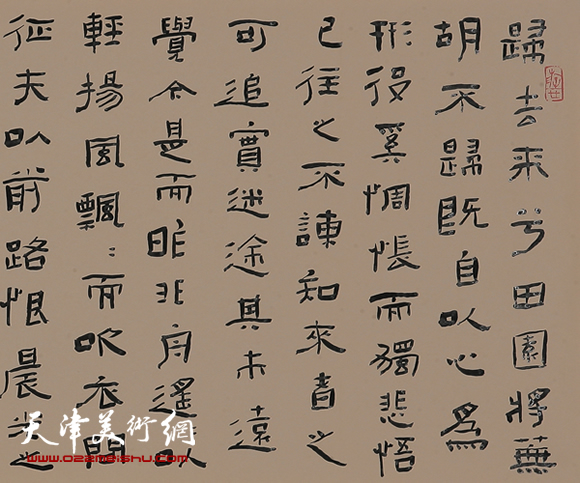 歸去来兮田園將蕪
胡不歸既自以心為
形役奚惆悵而獨悲悟
已往之不諫知來者之
可追實迷途其未遠
覺今是而昨非舟遙以
輕揚風飄〻而吹衣問
征夫以前路恨晨光之
天津美術網
www.022meishu.com